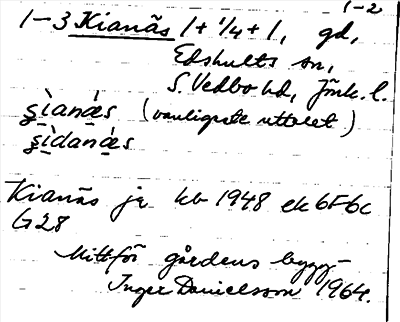 1-2
1-3 Kianäs 1+1/4+1, gd,
Edshults sn,
S. Vedbo hd, Jönk. l.
şìaná̱s (vanligaste uttalet)
şìdaná̱s
Kianäs jr kb 1948 ek 6F6c
G28
Mittför gårdens bygg-
Inger Danielsson 1964.